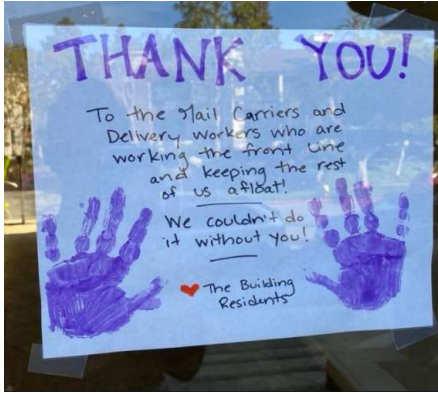 THANK YOU!
To the Mail Carriers and
Delivery workers who are
working the front line
and keeping the rest
of us afloat!
We couldn't do
it without you!
The Building
Residents